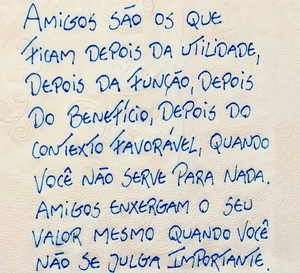 AMIGOS SÃO OS QUE
FICAM DEPOIS DA UTILIDADE,
DEPOIS DA FUNÇÃO, DEPOIS
DO BENEFÍCIO, DEPOIS DO
CONTEXTO FAVORÁVEL, QUANDO
VOCÊ NÃO SERVE PARA NADA.
AMIGOS ENXERGAM O SEU
VALOR MESMO QUANDO VOCÊ
NÃO SE JULGA IMPORTANTE.